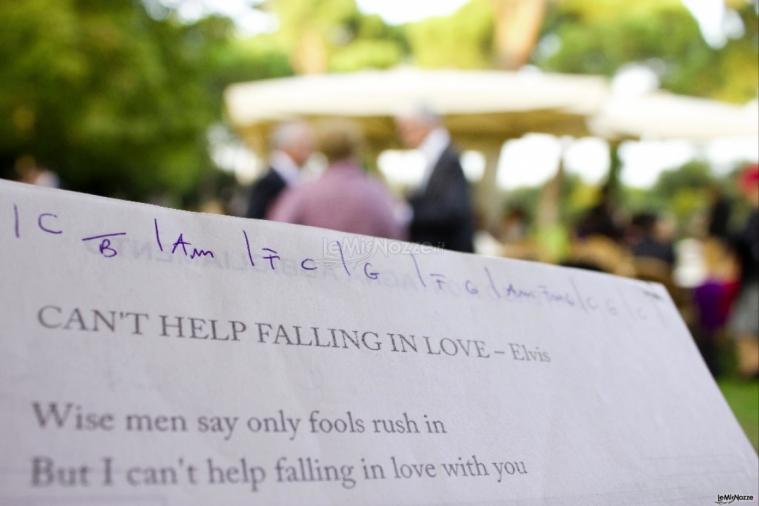 | C B | Am | F C | G | F G | Am Fm6 | C G | C |
CAN'T HELP FALLING IN LOVE – Elvis
Wise men say only fools rush in
But I can't help falling in love with you
LeMieNozze.it
LeMieNozze